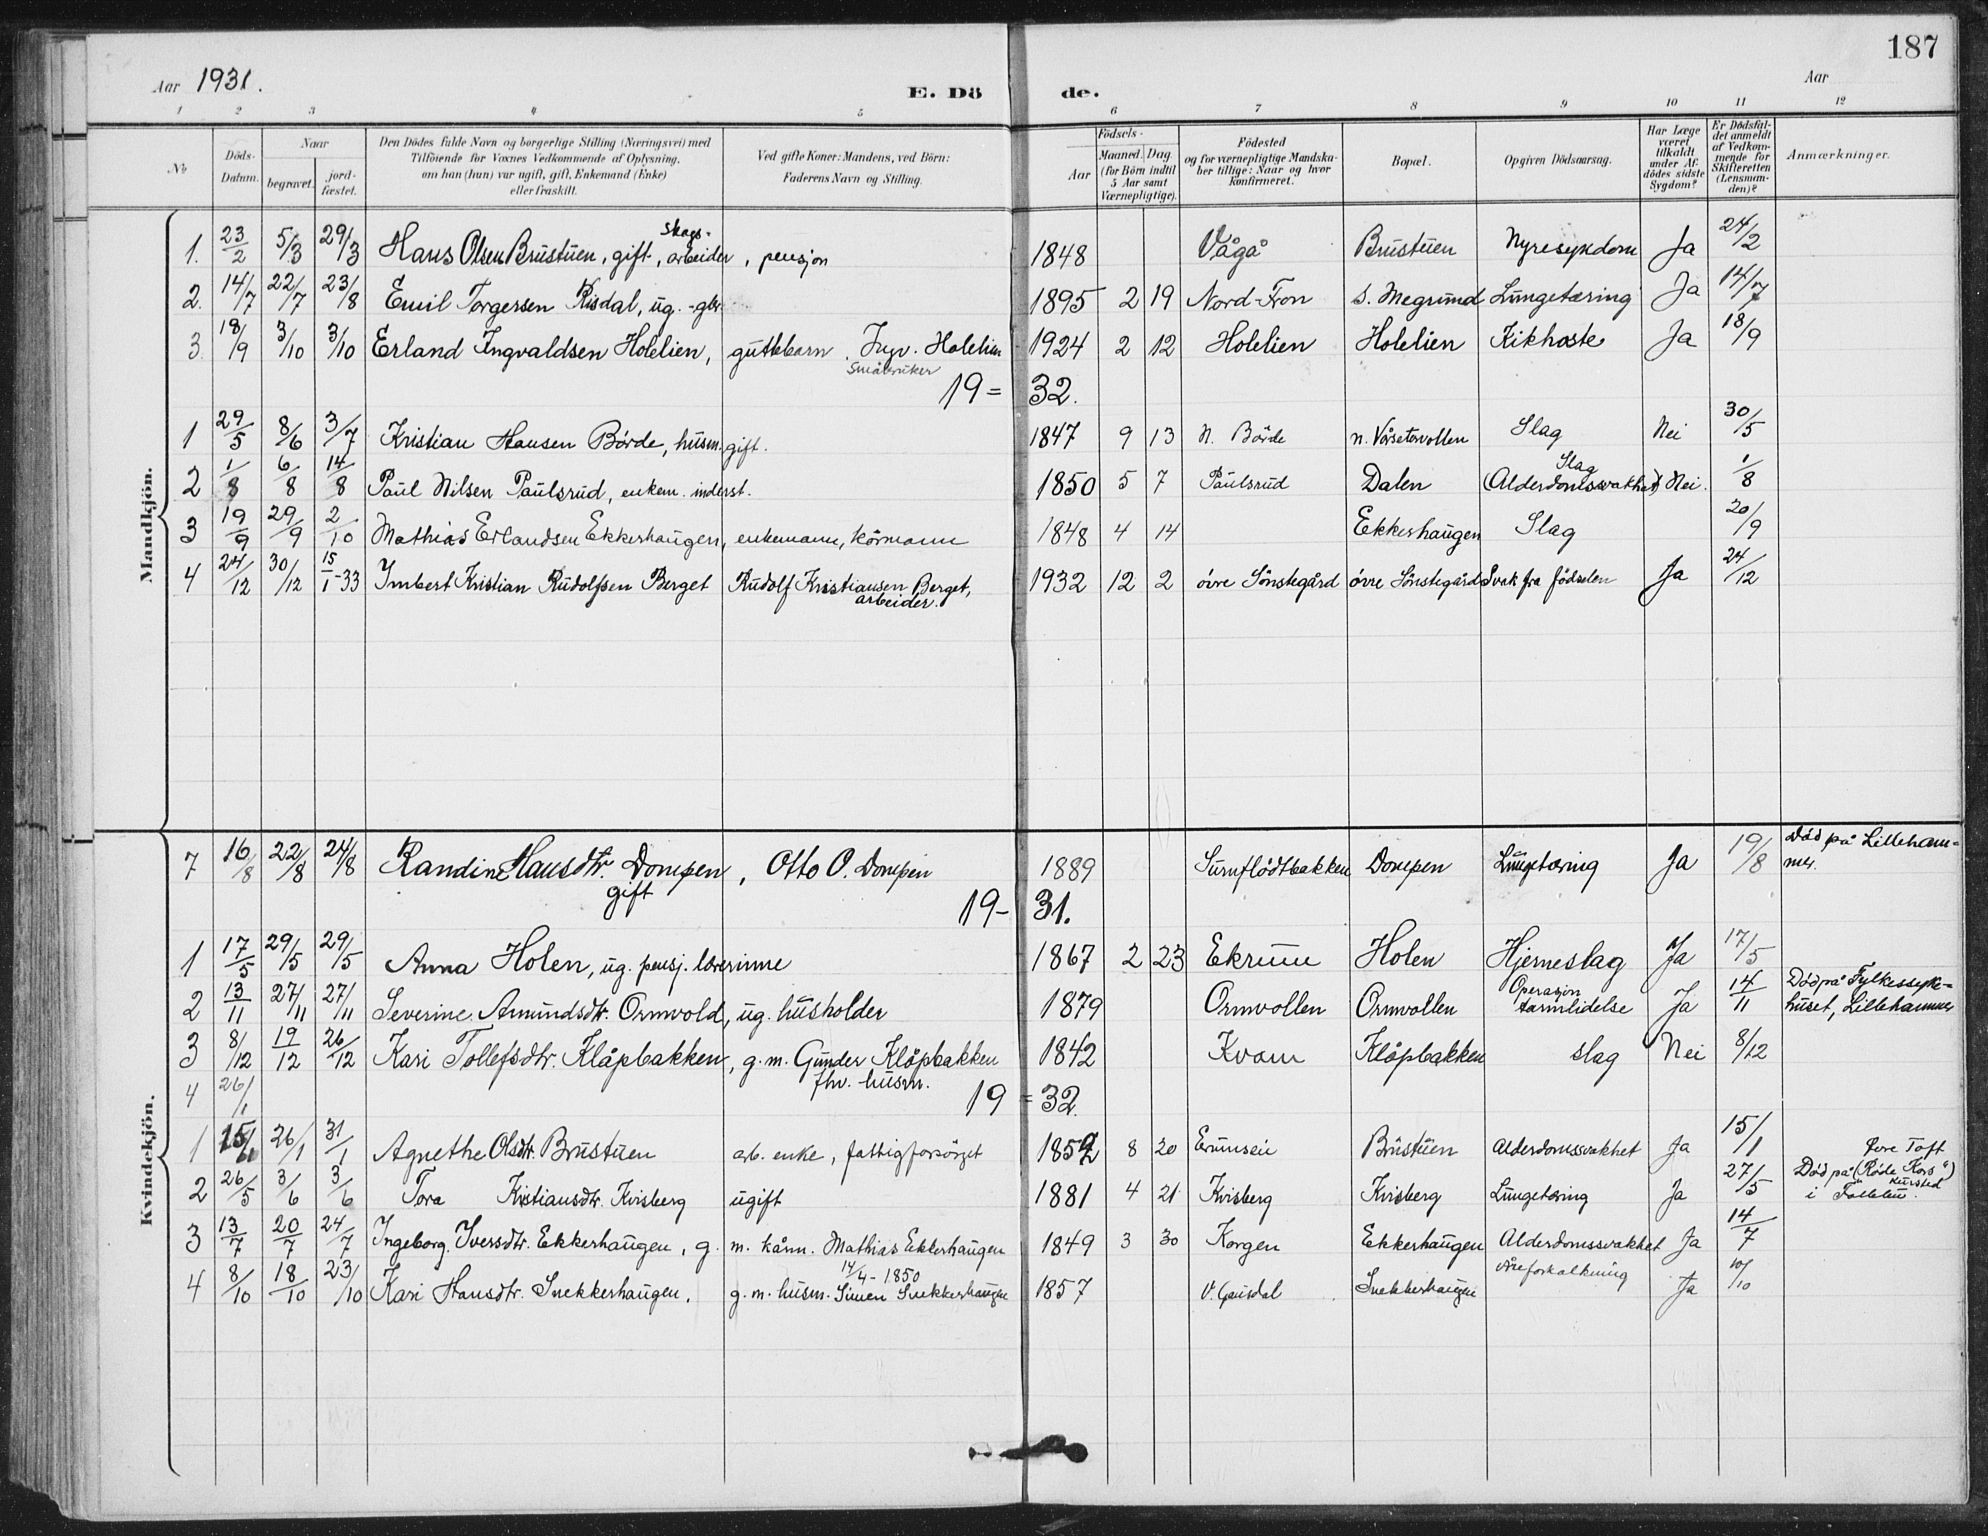 187
Aar 1931. E. Dö de. Aar
1 2 3 4 5 6 7 8 9 10 11 12
No
Döds-Datum.
Naar
begravet. jordfæstet.
Den Dödes fulde Navn og borgerlige Stilling (Næringsvei) med Tilföiende for Voxnes Vedkommende af Oplysning, om han (hun) var ugift, gift, Enkemand (Enke) eller fraskilt.
Ved gifte Koner: Mandens, ved Börn: Faderens Navn og Stilling.
Födsels-
Aar Maaned. Dag. (for Börn indtil 5 Aar samt Værnepligtige).
Födested og for værnepligtige Mandskaber tillige: Naar og hvor konfirmeret.
Bopæl.
Opgiven Dödsaarsag.
Har Læge været tilkaldt under Afdödes sidste Sygdom?
Er Dødsfaldet anmeldt af Vedkommende for Skifteretten (Lensmanden)?
Anmærkninger.
Mandkjön.
1. 23/2 5/3 29/3 Hans Olsen Brustuen, gift, skogsarbeider, pensjon 1848 Vågå Brustuen Nyresykdom Ja 24/2
2. 14/7 22/7 23/8 Emil Torgersen Risdal, ug. - gbr. 1895 2 19 Nord-Fron S. Megrund Lungetæring Ja 14/7
3. 18/9 3/10 3/10 Erland Ingvaldsen Holelien, guttebarn. Ingv. Holelien 1924 2 12 Holelien Holelien Kikhoste Ja 18/9
Småbruker
19 = 32.
1 29/5 8/6 3/7 Kristian Hansen Börde, husm. gift. 1847 9 13 N. Börde n. Vårsetervollen Slag Nei 30/5
2 1/8 6/8 14/8 Paul Nilsen Paulsrud, enkem. inderst. 1850 5 7 Paulsrud Dalen Slag (Alderdomssvakhet) Nei. 1/8
3 19/9 29/9 2/10 Mathias Erlandsen Ekkerhaugen, enkemann, kårmann 1848 4 14 Ekkerhaugen Slag 20/9
4 24/12 30/12 15/1-33 Imbert Kristian Rudolfsen Berget Rudolf Kristiansen Berget, arbeider. 1932 12 2 övre Sönstegård övre Sönstegård Svak fra födselen Ja 24/12
Kvindekjön.
7 16/8 22/8 24/8 Randine Hansdtr. Dompen, gift Otto O. Dompen 1889 Surnflödtbakken Dompen Lungetæring Ja 19/8 Död på Lillehammer.
19 - 31.
1 17/5 29/5 29/5 Anna Holen, ug. pensj. lærerinne 1867 2 23 Ekrum Holen Hjerneslag Ja 17/5
2 13/11 27/11 27/11 Severine Amundsdtr. Ormvold, ug. husholder 1879 Ormvollen Ormvollen Operasjon tarmlidelse Ja 14/11 Död på Fylkessykehuset, Lillehammer
3 8/12 19/12 26/12 Kari Tollefsdtr. Klåpbakken, g. m. Gunder Klåpbakken fhv. husm. 1842 Kvam Klåpbakken slag Nei 8/12
4 26/1
19 = 32.
1 15/1 26/1 31/1 Agnethe Olsdtr. Brustuen arb. enke, fattigforsörget 1852 8 20 Brustuen Alderdomssvakhet Ja 15/1
2 26/5 3/6 3/6 Tora Kristiansdtr. Kvisberg ugift 1881 4 21 Kvisberg Kvisberg Lungetæring Ja 27/5 Död på (Röde Kors kursted) i Follebu.
3 13/7 20/7 24/7 Ingeborg Iversdtr. Ekkerhaugen, g. m. kårm. Mathias Ekkerhaugen 1849 3 30 Korgen Ekkerhaugen Alderdomssvakhet Ja 14/7
4 8/10 18/10 23/10 Kari Hansdtr. Snekkerhaugen, g. m. husm. Simen Snekkerhaugen 14/4-1850 1857 V. Gausdal Snekkerhaugen åreforkalkning Ja 10/10